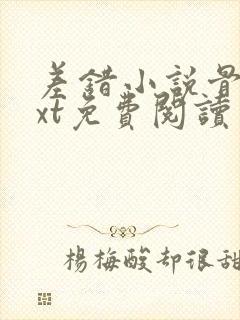 差錯小說最
xt免費閱讀
楊梅酸却很甜